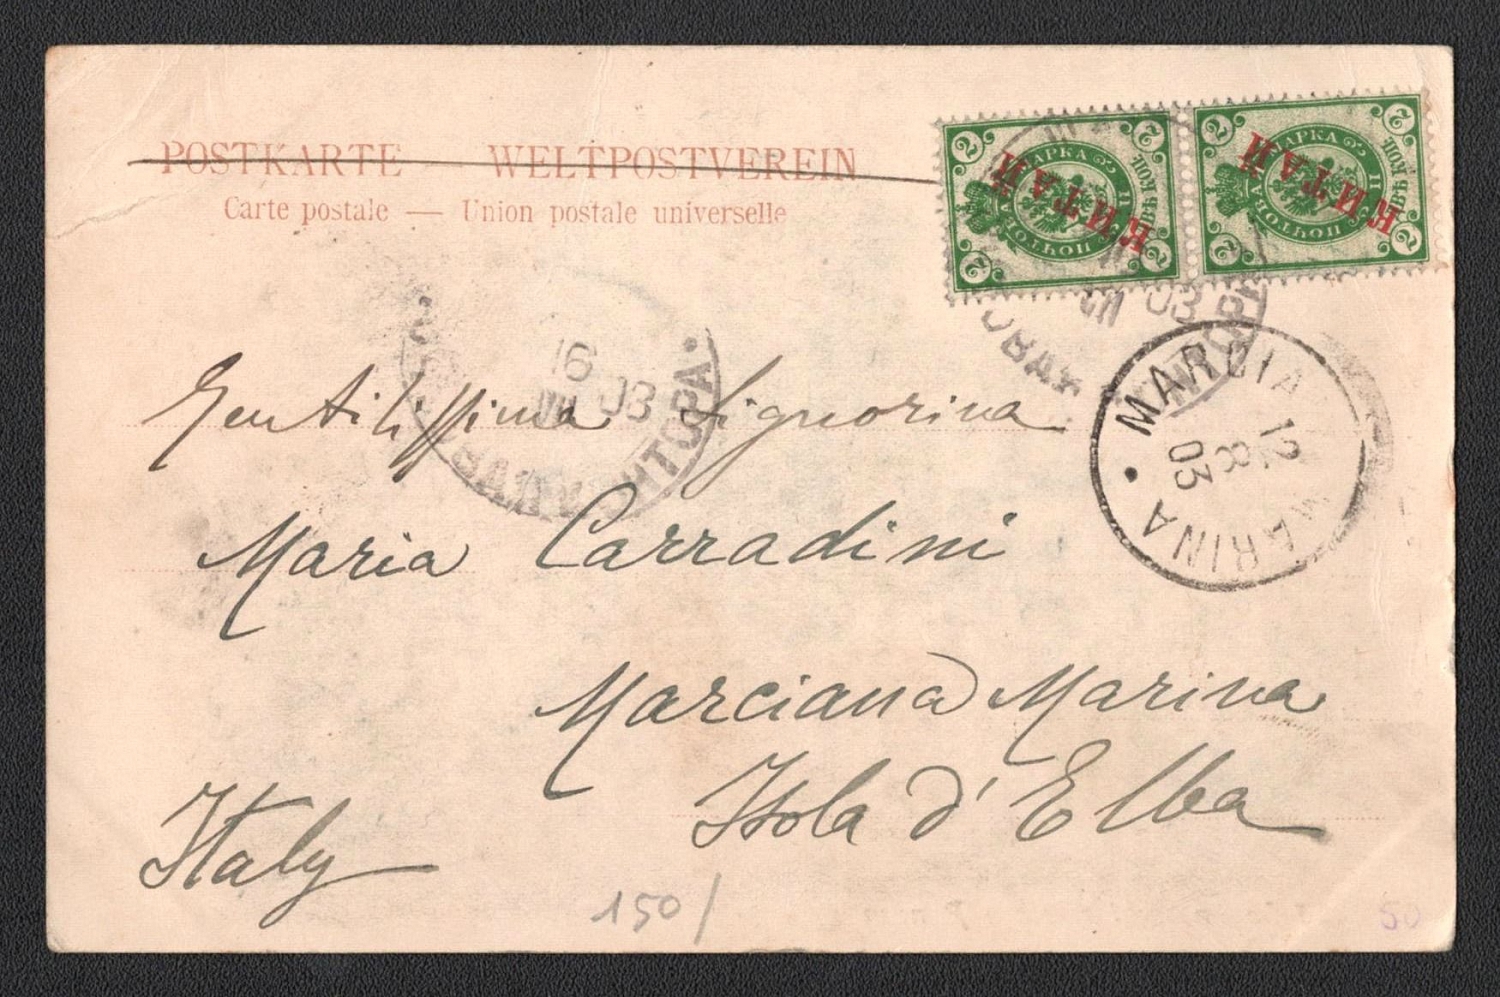 POSTKARTE — WELTPOSTVEREIN
Carte postale — Union postale universelle
2 2
МАРКА
ПОЧТОВА
КОП.
2 2
КИТАЙ
2 2
МАРКА
ПОЧТОВА
КОП.
2 2
КИТАЙ
VII 03
16
VII 03
КОНТОРА
MARCIANA MARINA
12
8
03
Gentilissima Signorina
Maria Carradini
Marciana Marina
Isola d'Elba
Italy
150/
50